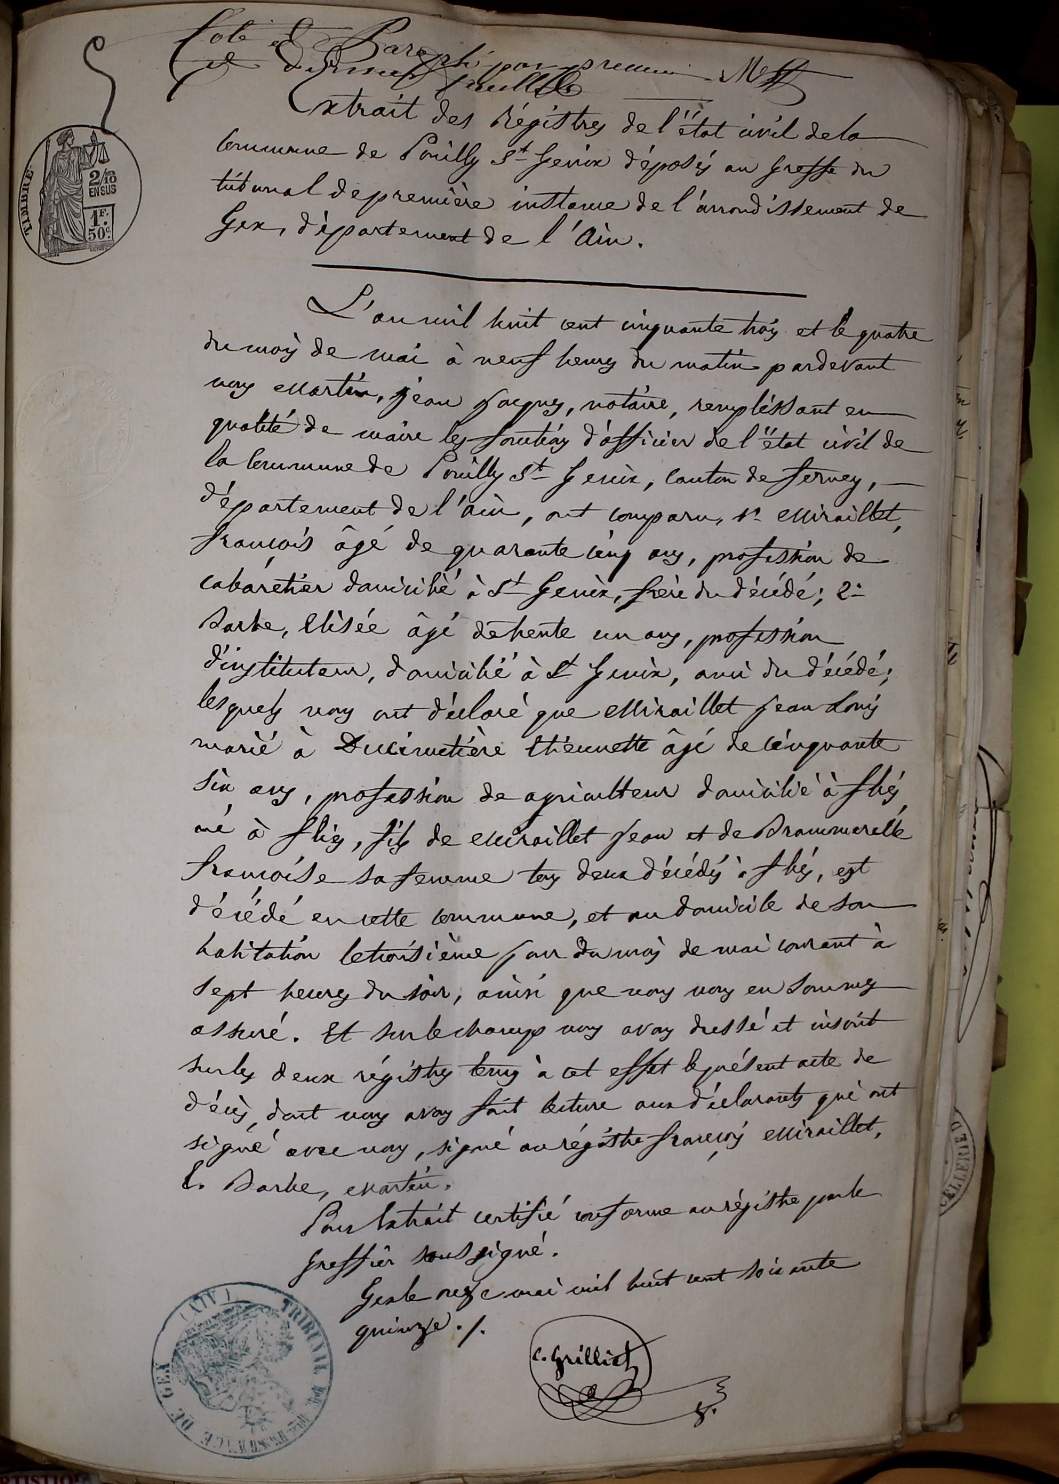 Coté et Paraphé par premier
et dernier feuillet
TIMBRE
2/10
EN SUS
1F.
50c.
Extrait des Régistres de l'état civil de la
Commune de Pouilly St Genix déposés au Greffe du
tribunal de première instance de l'arrondissement de
Gex, département de l'Ain.
L'an mil huit cent cinquante trois et le quatre
du mois de mai à neuf heures du matin pardevant
nous Martin, Jean Jacques, notaire, remplissant en
qualité de maire les fonctions d'officier de l'état civil de
la Commune de Pouilly St Genix, Canton de ferney,
département de l'ain, ont comparu, 1° Miraillet,
françois âgé de quarante cinq ans, profession de
cabaretier domicilié à St Genix, frère du décédé; 2°
Barbe, Elisée âgé de trente un ans, profession
d'instituteur, domicilié à St Genix, ami du décédé;
lesquels nous ont déclaré que Miraillet Jean Louis
marié à Ducimetière Etiennette âgé de cinquante
six ans, profession de agriculteur domicilié à flies
né à flies, fils de Miraillet Jean et de Brammerelle
françoise sa femme tous deux décédés à flies, est
décédé en cette commune, et au domicile de son
habitation le troisième jour du mois de mai courant à
sept heures du soir, ainsi que nous nous en sommes
assuré. Et sur le champ nous avons dressé et inscrit
sur les deux régistres tenus à cet effet le présent acte de
décès, dont nous avons fait lecture aux déclarants qui ont
signé avec nous, signé au régistre françois Miraillet,
E. Barbe, Martin.
Pour Extrait certifié conforme au régistre par le
Greffier soussigné.
Gex le onze mai mil huit cent soixante
quinze ./.
C. Grilliet
TRIBUNAL DE 1ère INSTANCE DE GEX (AIN)
CELLERIE D